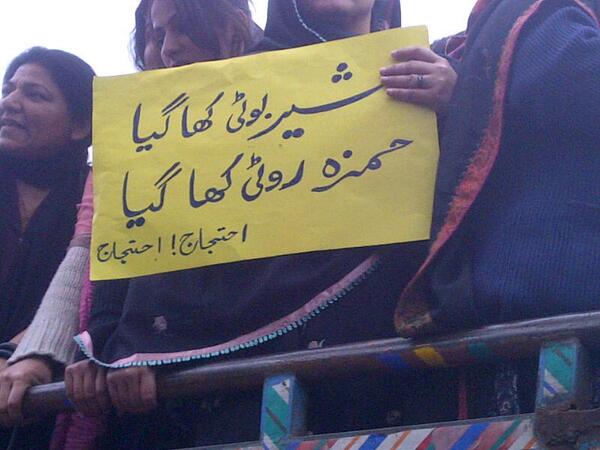 شیر بوٹی کھا گیا
حمزہ روٹی کھا گیا
احتجاج! احتجاج